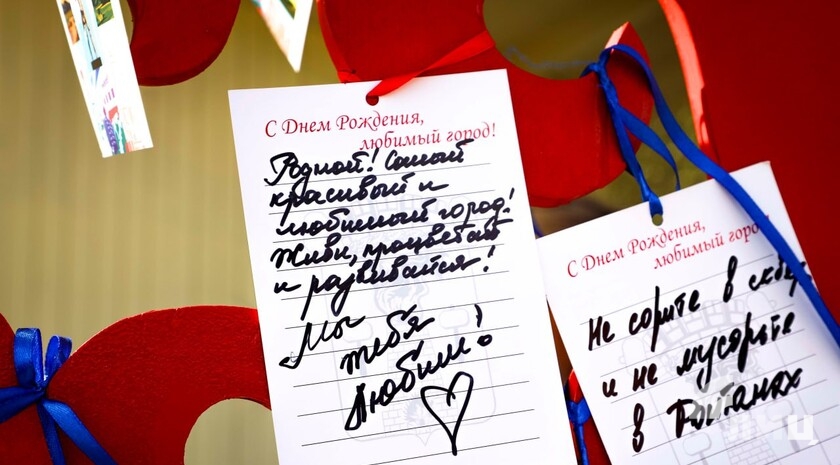 С Днем Рождения,
любимый город!
Родной! Самый
красивый и
любимый город!
Живи, процветай
и развивайся!
Мы
тебя
Любим!
С Днем Рождения,
любимый горо
Не сорите в
и не мусорьте
в